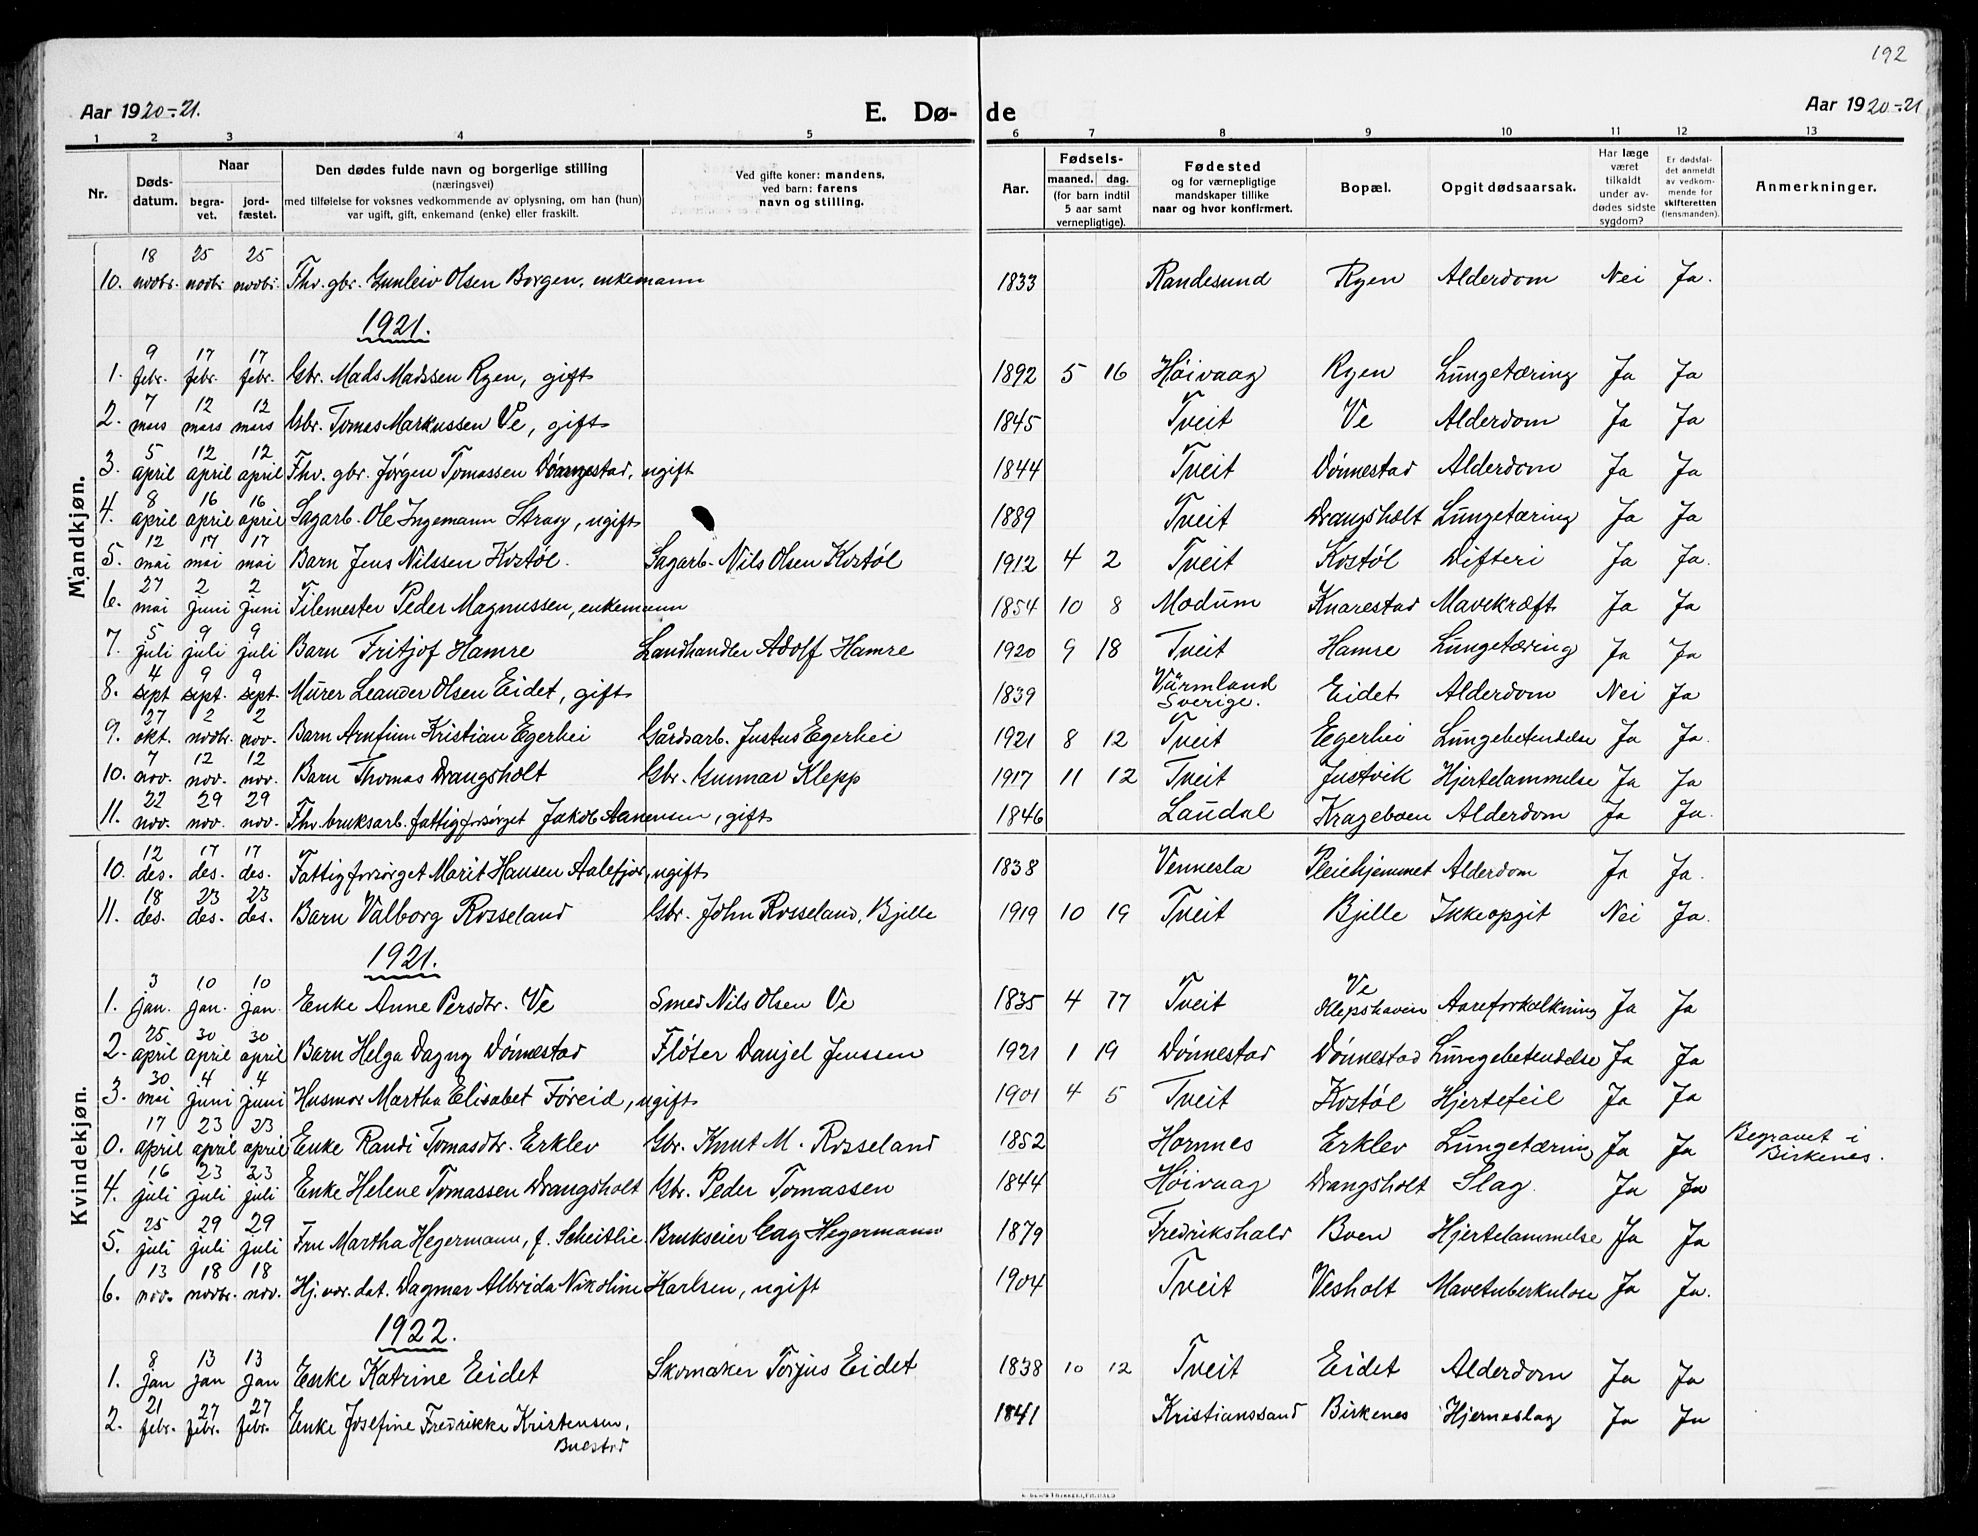 192
Aar 1920-21. E. Dø- de Aar 1920-21
1 2 3 4 5 6 7 8 9 10 11 12 13
Nr. Døds-datum. Naar begra-vet. jord-fæstet. Den dødes fulde navn og borgerlige stilling (næringsvei) med tilføielse for voksnes vedkommende av oplysning, om han (hun) var ugift, gift, enkemand (enke) eller fraskilt. Ved gifte koner: mandens, ved barn: farens navn og stilling. Aar. Fødsels- maaned. dag. (for barn indtil 5 aar samt vernepligtige). Fødested og for værnepligtige mandskaper tillike naar og hvor konfirmert. Bopæl. Opgit dødsaarsak. Har læge været tilkaldt under av-dødes sidste sygdom? Er dødsfal-det anmeldt av vedkom-mende for skifteretten (lensmanden). Anmerkninger.
Mandkjøn.
10. 18 novbr. 25 novbr. 25 novbr. Fhv. gbr. Gunleiv Olsen Borgen, enkemann 1833 Randesund Ryen Alderdom Nei Ja.
1921.
1. 9 febr. 17 febr. 17 febr. Gbr. Mads Madssen Ryen, gift 1892 5 16 Høivaag Ryen Lungetæring Ja Ja
2. 7 mars 12 mars 12 mars Gbr. Tomas Markussen Ve, gift 1845 Tveit Ve Alderdom Ja Ja
3. 5 april 12 april 12 april Fhv. gbr. Jørgen Tomassen Dønnestad, ugift 1844 Tveit Dønnestad Alderdom Ja Ja
4. 8 april 16 april 16 april Sagarb. Ole Ingemann Stray, ugift 1889 Tveit Drangsholt Lungetæring Ja Ja
5. 12 mai 17 mai 17 mai Barn Jens Nilssen Kostøl. Sagarb. Nils Olsen Kostøl 1912 4 2 Tveit Kostøl Difteri Ja Ja.
6. 27 mai 2 juni 2 juni Filemester Peder Magnussen, enkemann 1854 10 8 Modum Knarestad Mavekræft Ja Ja
7. 5 juli 9 juli 9 juli Barn Fritjof Hamre Landhandler Adolf Hamre 1920 9 18 Tveit Hamre Lungetæring Ja Ja
8. 4 sept 9 sept. 9 sept. Murer Leander Olsen Eidet, gift 1839 Värmland Sverige. Eidet Alderdom Nei Ja
9. 27 okt. 2 novbr. 2 nov. Barn Arnfinn Kristian Egerhei Gårdsarb. Justus Egerhei 1921 8 12 Tveit Egerhei Lungebetendelse Ja Ja.
10. 7 nov. 12 nov. 12 nov. Barn Thomas Drangsholt Gbr. Gunnar Klepp 1917 11 12 Tveit Justvik Hjertelammelse Ja Ja
11. 22 nov. 29 nov. 29 nov. Fhv. bruksarb. fattigforsørget Jakob Aanensen, gift 1846 Laudal Krageboen Alderdom Ja Ja.
Kvindekjøn.
10. 12 des. 17 des. 17 des. Fattigforsørget Marit Hansen Aalefjær, ugift 1838 Vennesla Pleiehjemmet Alderdom Ja Ja.
11. 18 des. 23 des. 23 des. Barn Valborg Rosseland Gbr. John Rosseland, Bjelle 1919 10 19 Tveit Bjelle Ikke opgit Nei Ja.
1921.
1. 3 jan. 10 jan. 10 jan. Enke Anne Persdtr. Ve Smed Nils Olsen Ve 1835 4 17 Tveit Ve Klepshaven Aareforkalkning Ja Ja
2. 25 april 30 april 30 april Barn Helga Dagny Dønnestad Fløter Danjel Jenssen 1921 1 19 Dønnestad Dønnestad Lungebetendelse Ja Ja
3. 30 mai 4 juni 4 juni Husmor Martha Elisabet Føreid, ugift 1901 4 5 Tveit Kostøl Hjertefeil Ja Ja
0. 17 april 23 april 23 april Enke Randi Tomasdtr. Erklev Gbr. Knut M. Rosseland 1852 Hornnes Erklev Lungetæring Ja Ja Begravet i Birkenes.
4. 16 juli 23 juli 23 juli Enke Helene Tomassen Drangsholt Gbr. Peder Tomassen 1844 Høivaag Drangsholt Slag. Ja Ja
5. 25 juli 29 juli 29 juli Fru Martha Hegermann, f. Scheitlie Brukseier Cay Hegermann 1879 Fredrikshald Boen Hjertelammelse Ja Ja
6. 13 nov. 18 novbr. 18 nov. Hj.vær. dat. Dagmar Albrida Nikoline Karlsen, ugift 1904 Tveit Vesholt Mavetuberkulose Ja Ja.
1922.
1. 8 jan 13 jan 13 jan Enke Katrine Eidet Skomaker Torjus Eidet 1838 10 12 Tveit Eidet Alderdom Ja Ja
2. 21 febr. 27 febr. 27 febr. Enke Josefine Fredrikke Kristensen, Buestad 1841 Kristianssand Birkenes Hjerneslag Ja Ja